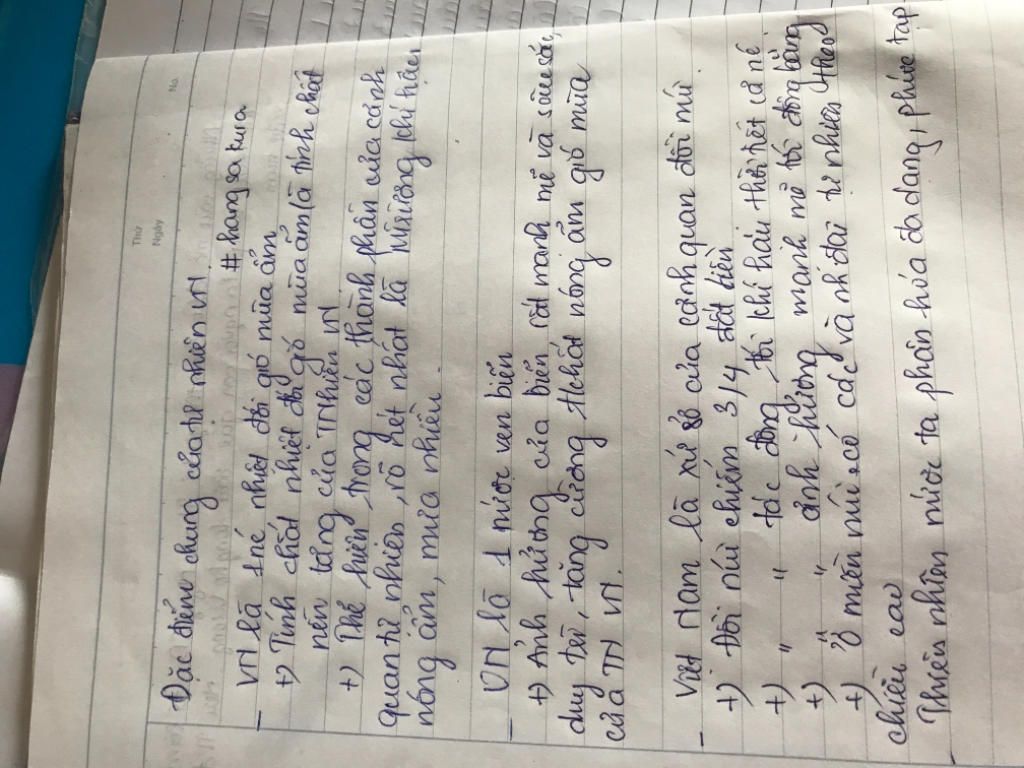 Thứ
Ngày
No.
Đặc điểm chung của tự nhiên VN
# hangsakura
- VN là 1 nc nhiệt đới gió mùa ẩm
+) Tính chất nhiệt đới gió mùa ẩm là tính chất
nền tảng của TNhiên VN
+) Thể hiện trong các thành phần của cảnh
quan tự nhiên, rõ nét nhất là Mtrường khí hậu
nóng ẩm, mưa nhiều.
- VN là 1 nước ven biển
+) Ảnh hưởng của biển rất mạnh mẽ và sâu sắc,
duy trì, tăng cường t/chất nóng ẩm gió mùa
của TN VN.
- Việt Nam là xứ sở của cảnh quan đồi núi.
+) Đồi núi chiếm 3/4 đất liền
+) " tác động tới khí hậu thời tiết cả nc
+) " ảnh hưởng mạnh mẽ tới đồng bằng
+) Ở miền núi có các vành đai tự nhiên theo
chiều cao
- Thiên nhiên nước ta phân hóa đa dạng, phức tạp